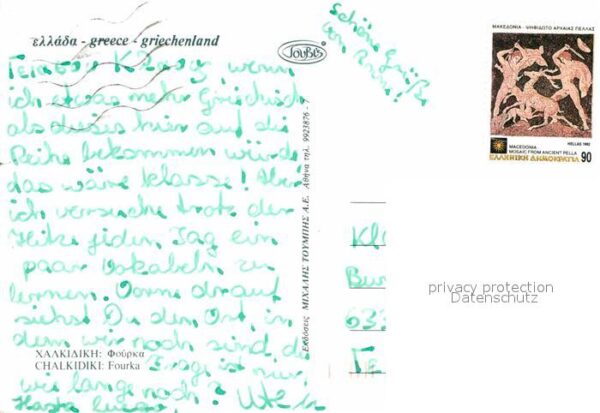 ελλάδα - greece - griechenland
Γεια σου Klaus, wenn
ich etwas mehr Griechisch
als dieses hier auf die
Reihe bekommen würde
das wäre klasse! Aber
ich versuche trotz der
Hitze jeden Tag ein
paar Vokabeln zu
lernen. Vorne drauf
siehst Du den Ort in
dem wir noch sind. d
ΧΑΛΚΙΔΙΚΗ: Φούρκα
CHALKIDIKI: Fourka
Frage ist nur
wie lange noch?
Hasta luego Ute
Schöne Grüße
von
Εκδόσεις ΜΙΧΑΛΗΣ ΤΟΥΜΠΗΣ Α.Ε. Αθήνα τηλ. 9923876 - 7
ΜΑΚΕΔΟΝΙΑ - ΨΗΦΙΔΩΤΟ ΑΡΧΑΙΑΣ ΠΕΛΛΑΣ
HELLAS 1992
MACEDONIA
MOSAIC FROM ANCIENT PELLA
ΕΛΛΗΝΙΚΗ ΔΗΜΟΚΡΑΤΙΑ 90
Kl
Bu
633
privacy protection
Datenschutz